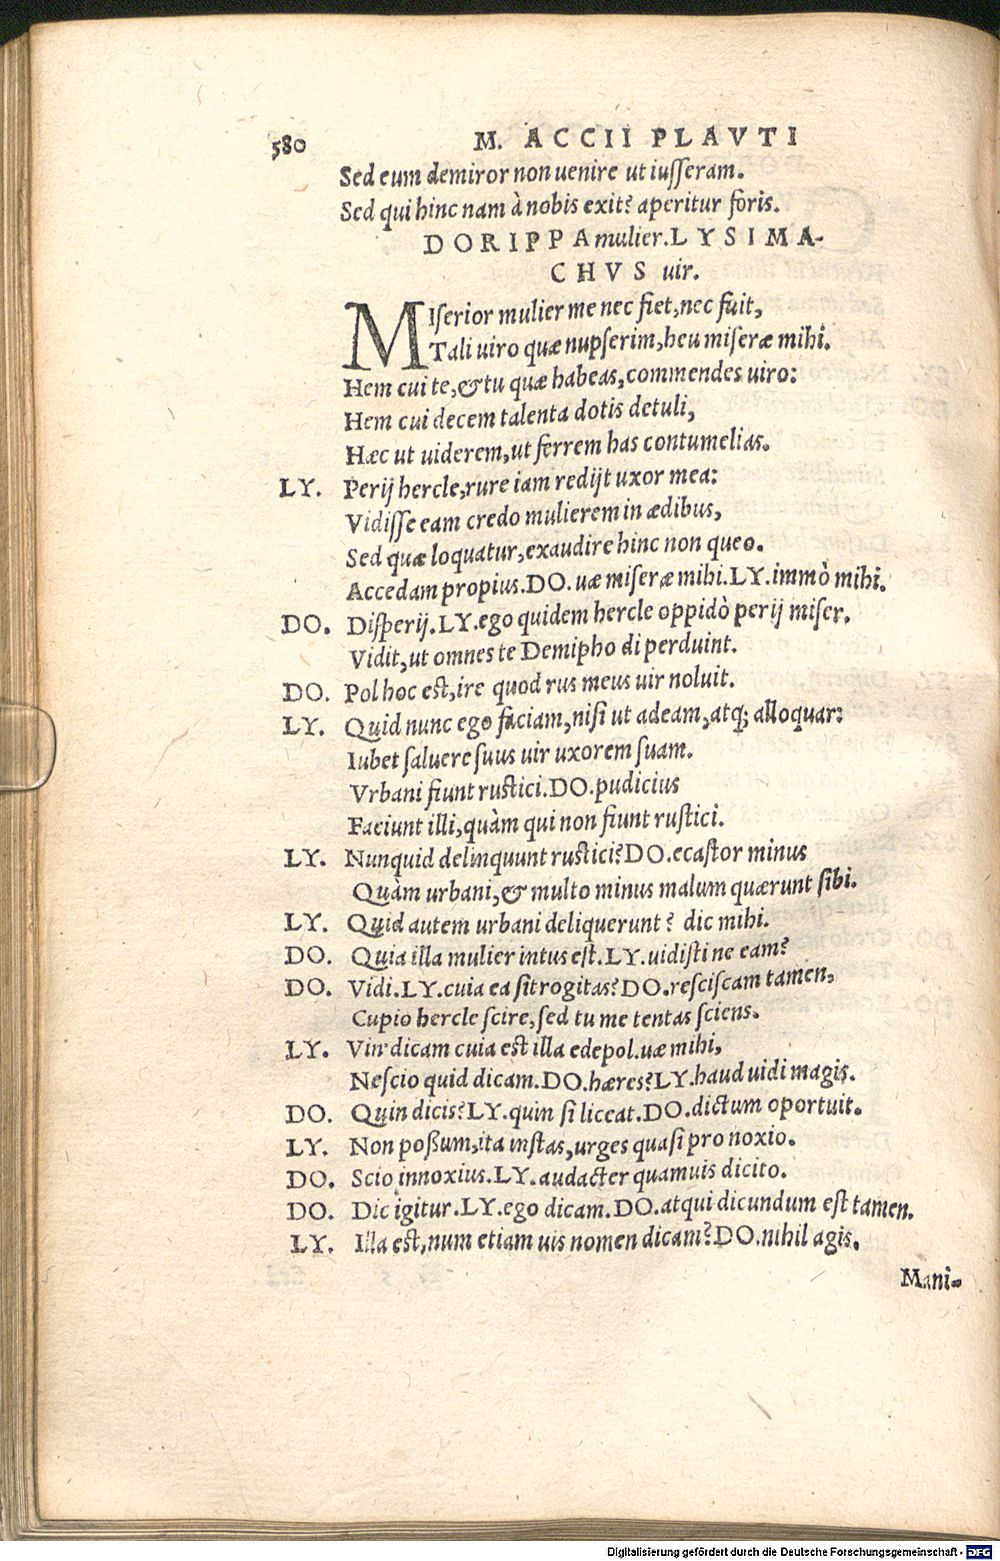 580 M. ACCII PLAVTI
Sed eum demiror non uenire ut iusseram.
Sed qui hinc nam à nobis exit? aperitur foris.
DORIPPA mulier. LYSIMA-
CHVS uir.
MIserior mulier me nec fiet, nec fuit,
Tali uiro quæ nupserim, heu miseræ mihi.
Hem cui te, & tu quæ habeas, commendes uiro:
Hem cui decem talenta dotis detuli,
Hæc ut uiderem, ut ferrem has contumelias.
LY. Perij hercle, rure iam redijt uxor mea:
Vidisse eam credo mulierem in ædibus,
Sed quæ loquatur, exaudire hinc non queo.
Accedam propius. DO. uæ miseræ mihi. LY. immò mihi.
DO. Disperij. LY. ego quidem hercle oppidò perij miser.
Vidit, ut omnes te Demipho di perduint.
DO. Pol hoc est, ire quod rus meus uir noluit.
LY. Quid nunc ego faciam, nisi ut adeam, atq; alloquar:
Iubet saluere suus uir uxorem suam.
Vrbani fiunt rustici. DO. pudicius
Faciunt illi, quàm qui non fiunt rustici.
LY. Nunquid delinquunt rustici? DO. ecastor minus
Quàm urbani, & multo minus malum quærunt sibi.
LY. Quid autem urbani deliquerunt? dic mihi.
DO. Quia illa mulier intus est. LY. uidistine eam?
DO. Vidi. LY. cuia ea sit rogitas? DO. resciscam tamen,
Cupio hercle scire, sed tu me tentas sciens.
LY. Vin' dicam cuia est illa edepol. uæ mihi,
Nescio quid dicam. DO. hæres? LY. haud uidi magis.
DO. Quin dicis? LY. quin si liceat. DO. dictum oportuit.
LY. Non poßum, ita instas, urges quasi pro noxio.
DO. Scio innoxius. LY. audacter quamuis dicito.
DO. Dic igitur. LY. ego dicam. DO. atqui dicundum est tamen.
LY. Illa est, num etiam uis nomen dicam? DO. nihil agis.
Mani-
Digitalisierung gefördert durch die Deutsche Forschungsgemeinschaft - DFG